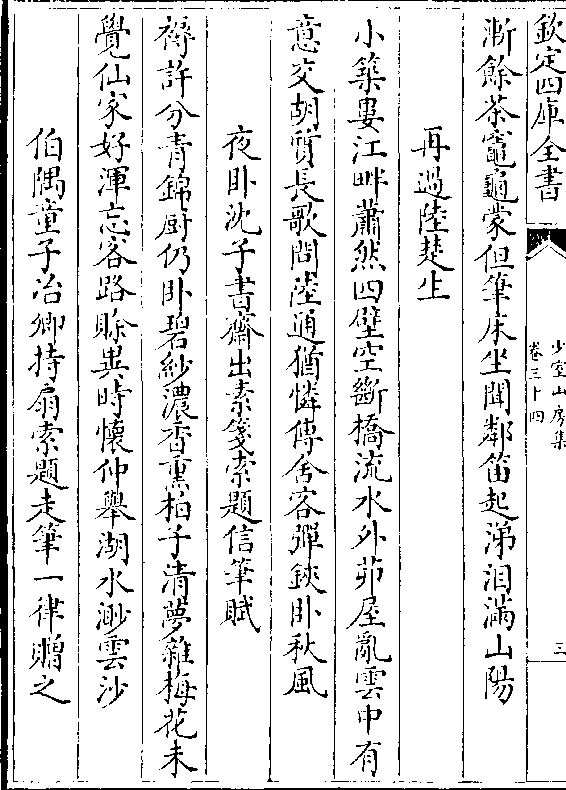 欽定四庫全書
少室山房集
卷三十四
三
漸餘茶竈龜蒙但筆床坐聞鄰笛起涕泪滿山陽
再過陸楚生
小築婁江畔蕭然四壁空斷橋流水外茆屋亂雲中有
意交胡質長歌問陸通猶憐傳舍客彈鋏卧秋風
夜卧沈子書齋出素箋索題信筆賦
褥許分青錦厨仍卧碧紗濃香熏柏子清夢雜梅花未
覺仙家好渾忘客路賒異時懷仲舉湖水渺雲沙
伯隅童子冶卿持扇索題走筆一律贈之